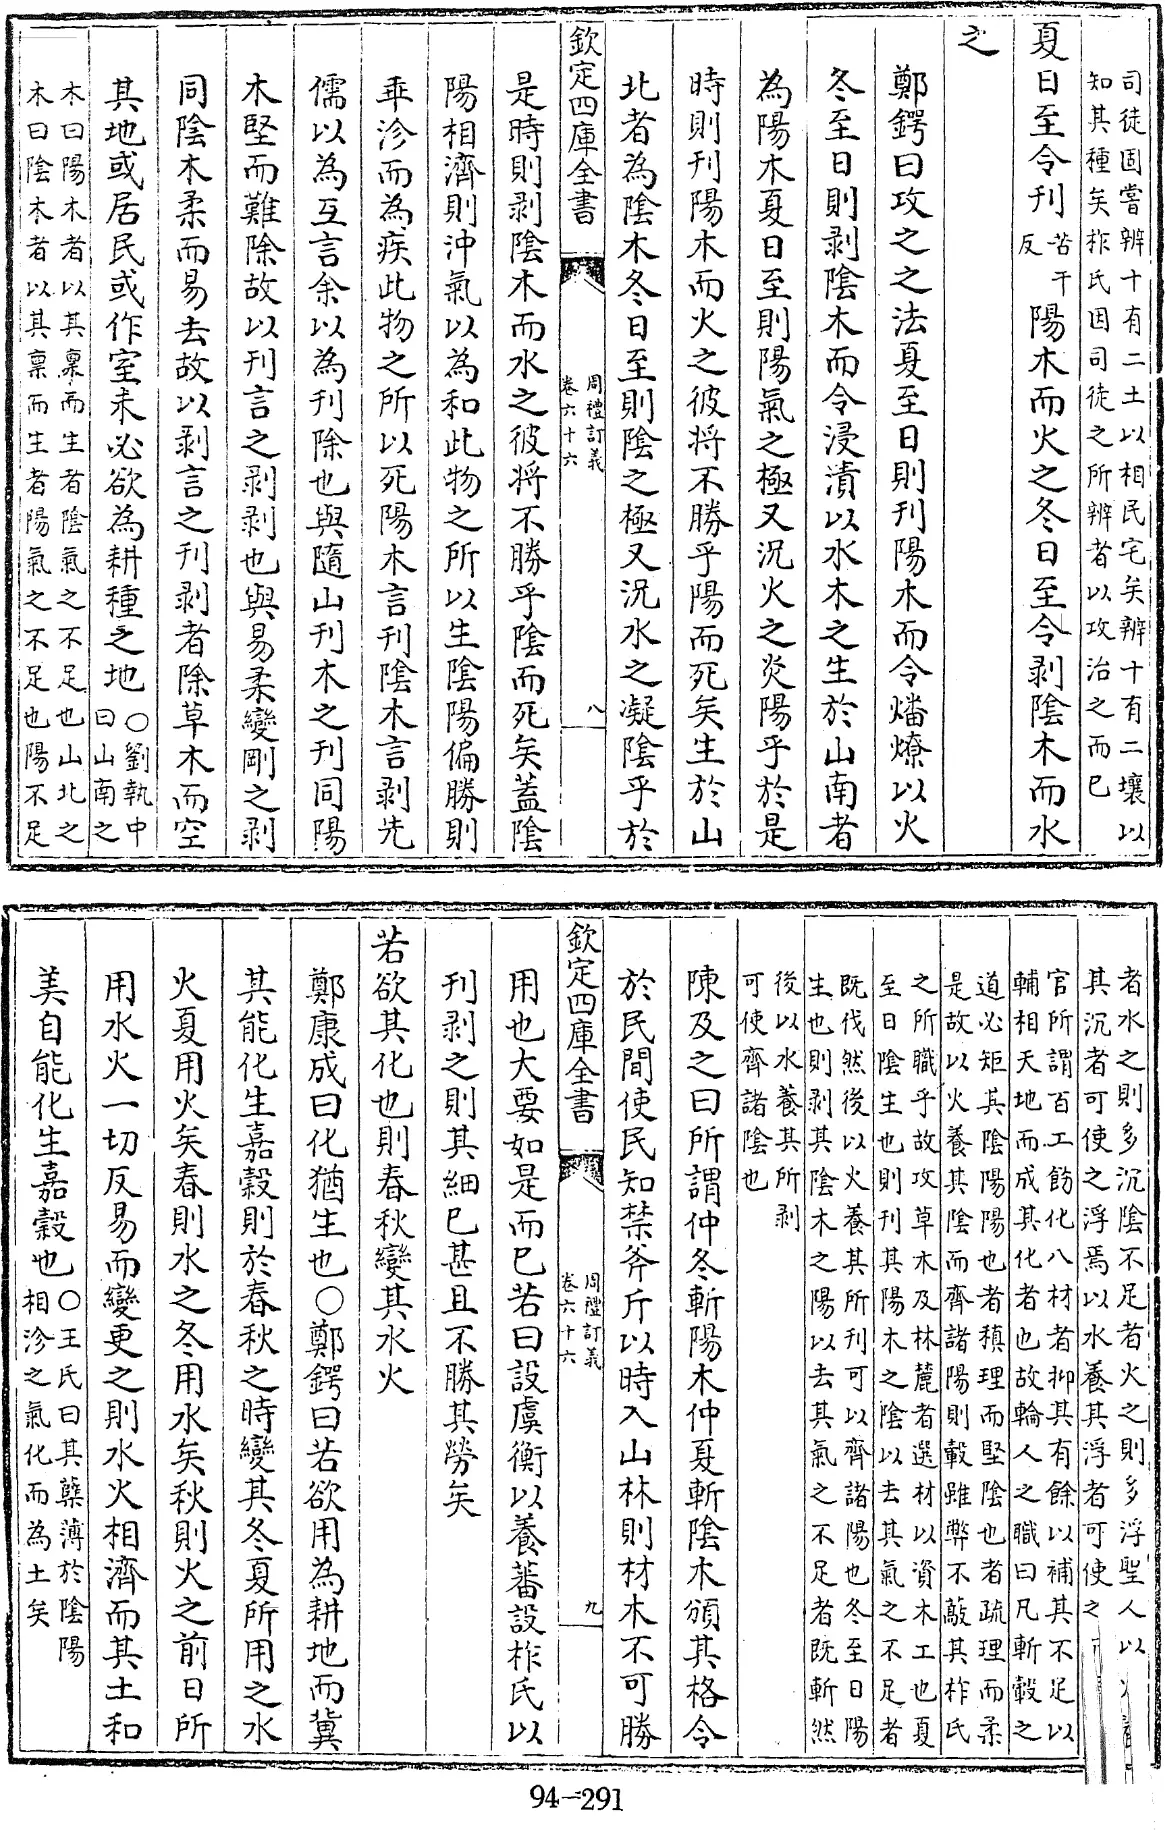 司徒固嘗辨十有二土以相民宅矣辨十有二壤以
知其種矣柞氏因司徒之所辨者以攻治之而已
夏日至令刊苦干反陽木而火之冬日至令剥陰木而水
之
鄭鍔曰攻之之法夏至日則刊陽木而令燔燎以火
冬至日則剥陰木而令浸漬以水木之生於山南者
為陽木夏日至則陽氣之極又況火之炎陽乎於是
時則刊陽木而火之彼將不勝乎陽而死矣生於山
北者為陰木冬日至則陰之極又況水之凝陰乎於
欽定四庫全書
周禮訂義
卷六十六
八
是時則剥陰木而水之彼將不勝乎陰而死矣蓋陰
陽相濟則沖氣以為和此物之所以生陰陽偏勝則
乖沴而為疾此物之所以死陽木言刊陰木言剥先
儒以為互言余以為刊除也與隨山刊木之刊同陽
木堅而難除故以刊言之剥剥也與易柔變剛之剥
同陰木柔而易去故以剥言之刊剥者除草木而空
其地或居民或作室未必欲為耕種之地○劉執中
曰山南之
木曰陽木者以其稟而生者陰氣之不足也山北之
木曰陰木者以其稟而生者陽氣之不足也陽不足
者水之則多沉陰不足者火之則多浮聖人以
其沉者可使之浮焉以水養其浮者可使之
官所謂百工飭化八材者抑其有餘以補其不足以
輔相天地而成其化者也故輪人之職曰凡斬轂之
道必矩其陰陽陽也者稹理而堅陰也者疏理而柔
是故以火養其陰而齊諸陽則轂雖弊不蔌其柞氏
之所職乎故攻草木及林麓者選材以資木工也夏
至日陰生也則刊其陽木之陰以去其氣之不足者
既伐然後以火養其所刊可以齊諸陽也冬至日陽
生也則剥其陰木之陽以去其氣之不足者既斬然
後以水養其所剥
可使齊諸陰也
陳及之曰所謂仲冬斬陽木仲夏斬陰木頒其格令
於民間使民知禁斧斤以時入山林則材木不可勝
欽定四庫全書
周禮訂義
卷六十六
九
用也大要如是而已若曰設虞衡以養蕃設柞氏以
刊剥之則其細已甚且不勝其勞矣
若欲其化也則春秋變其水火
鄭康成曰化猶生也○鄭鍔曰若欲用為耕地而冀
其能化生嘉穀則於春秋之時變其冬夏所用之水
火夏用火矣春則水之冬用水矣秋則火之前日所
用水火一切反易而變更之則水火相濟而其土和
美自能化生嘉穀也○王氏曰其蘖薄於陰陽
相沴之氣化而為土矣
94-291